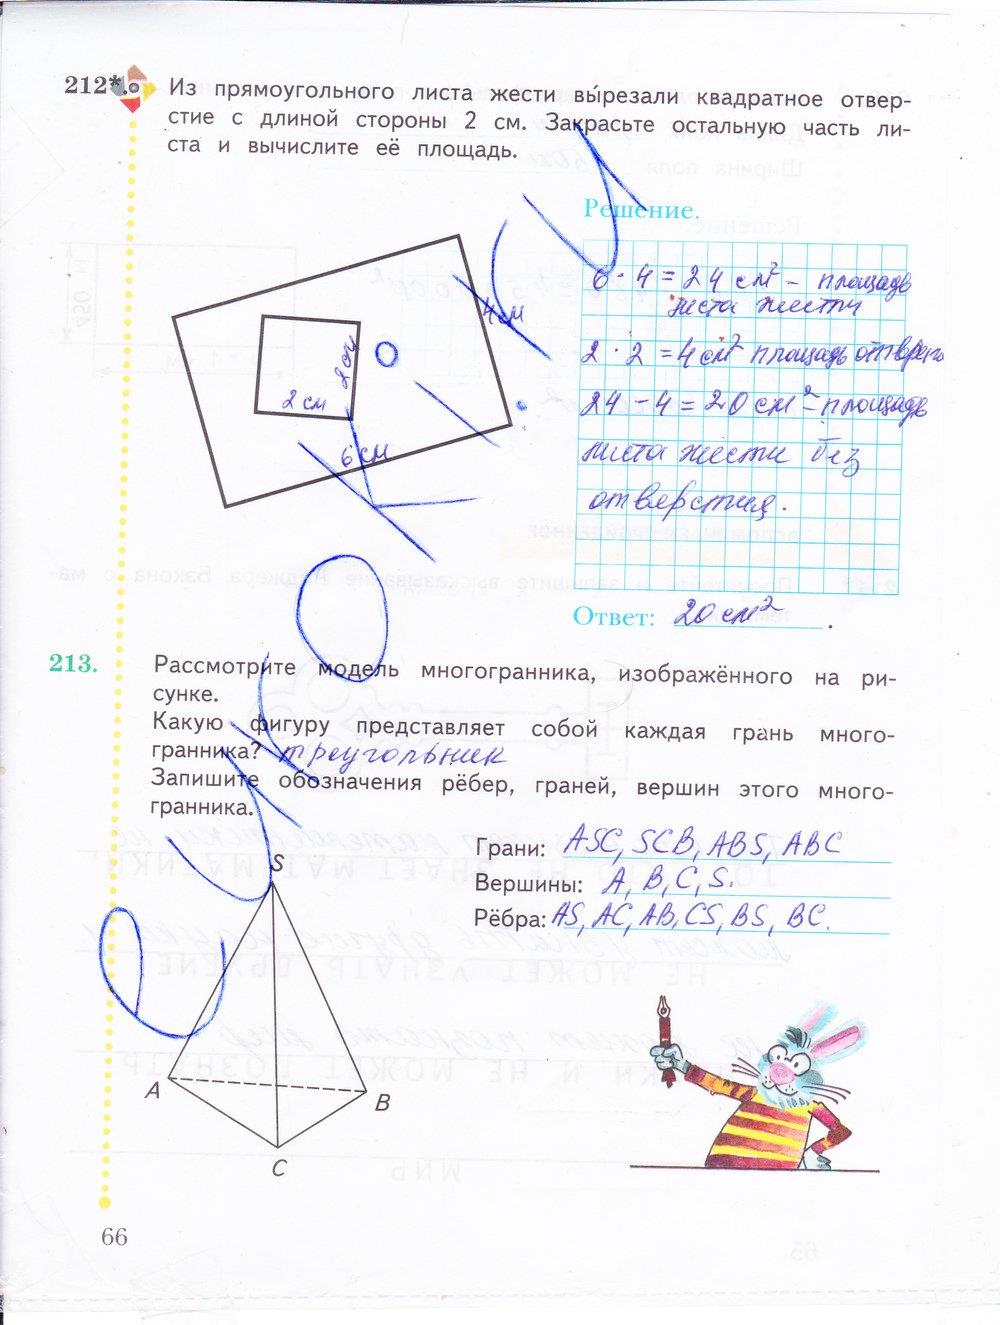 212*.
Из прямоугольного листа жести вы́резали квадратное отвер-
стие с длиной стороны 2 см. Закрасьте остальную часть ли-
ста и вычислите её площадь.
Решение.
6 · 4 = 24 см² – площадь
листа жести
2 · 2 = 4 см² площадь отверст
24 – 4 = 20 см² – площадь
листа жести без
отверстия.
4 см
2 см
2 см
6 см
Ответ: 20 см².
213.
Рассмотрите модель многогранника, изображённого на ри-
сунке.
Какую фигуру представляет собой каждая грань много-
гранника? треугольник
Запишите обозначения рёбер, граней, вершин этого много-
гранника.
Грани: ASC, SCB, ABS, ABC
Вершины: A, B, C, S.
Рёбра: AS, AC, AB, CS, BS, BC.
S
A
B
C
66